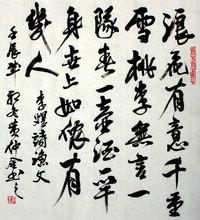 浪花有意千重
雪桃李無言一
隊春一壺酒一竿
身世上如儂有
幾人
李煜詩漁父
壬辰